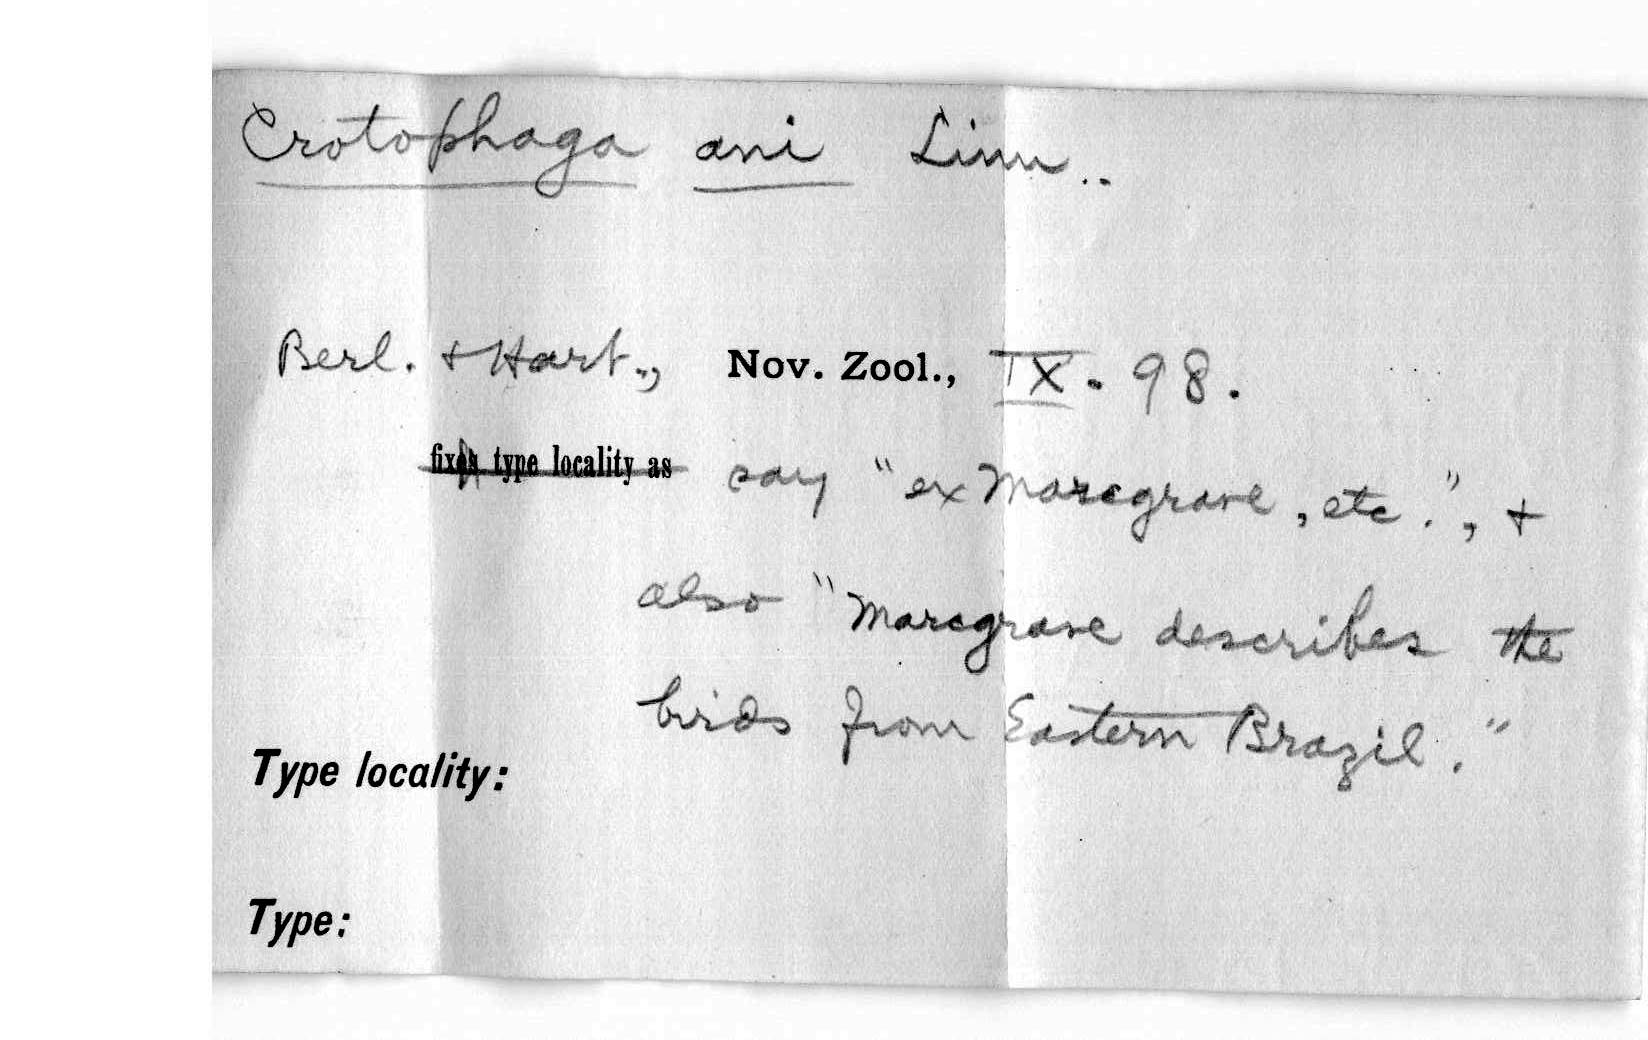 Crotophaga ani Linn..
Berl. + Hart., Nov. Zool., IX. 98.
fixes type locality as say "ex Marcgrave, etc.", +
also "Marcgrave describes the
birds from Eastern Brazil."
Type locality:
Type: